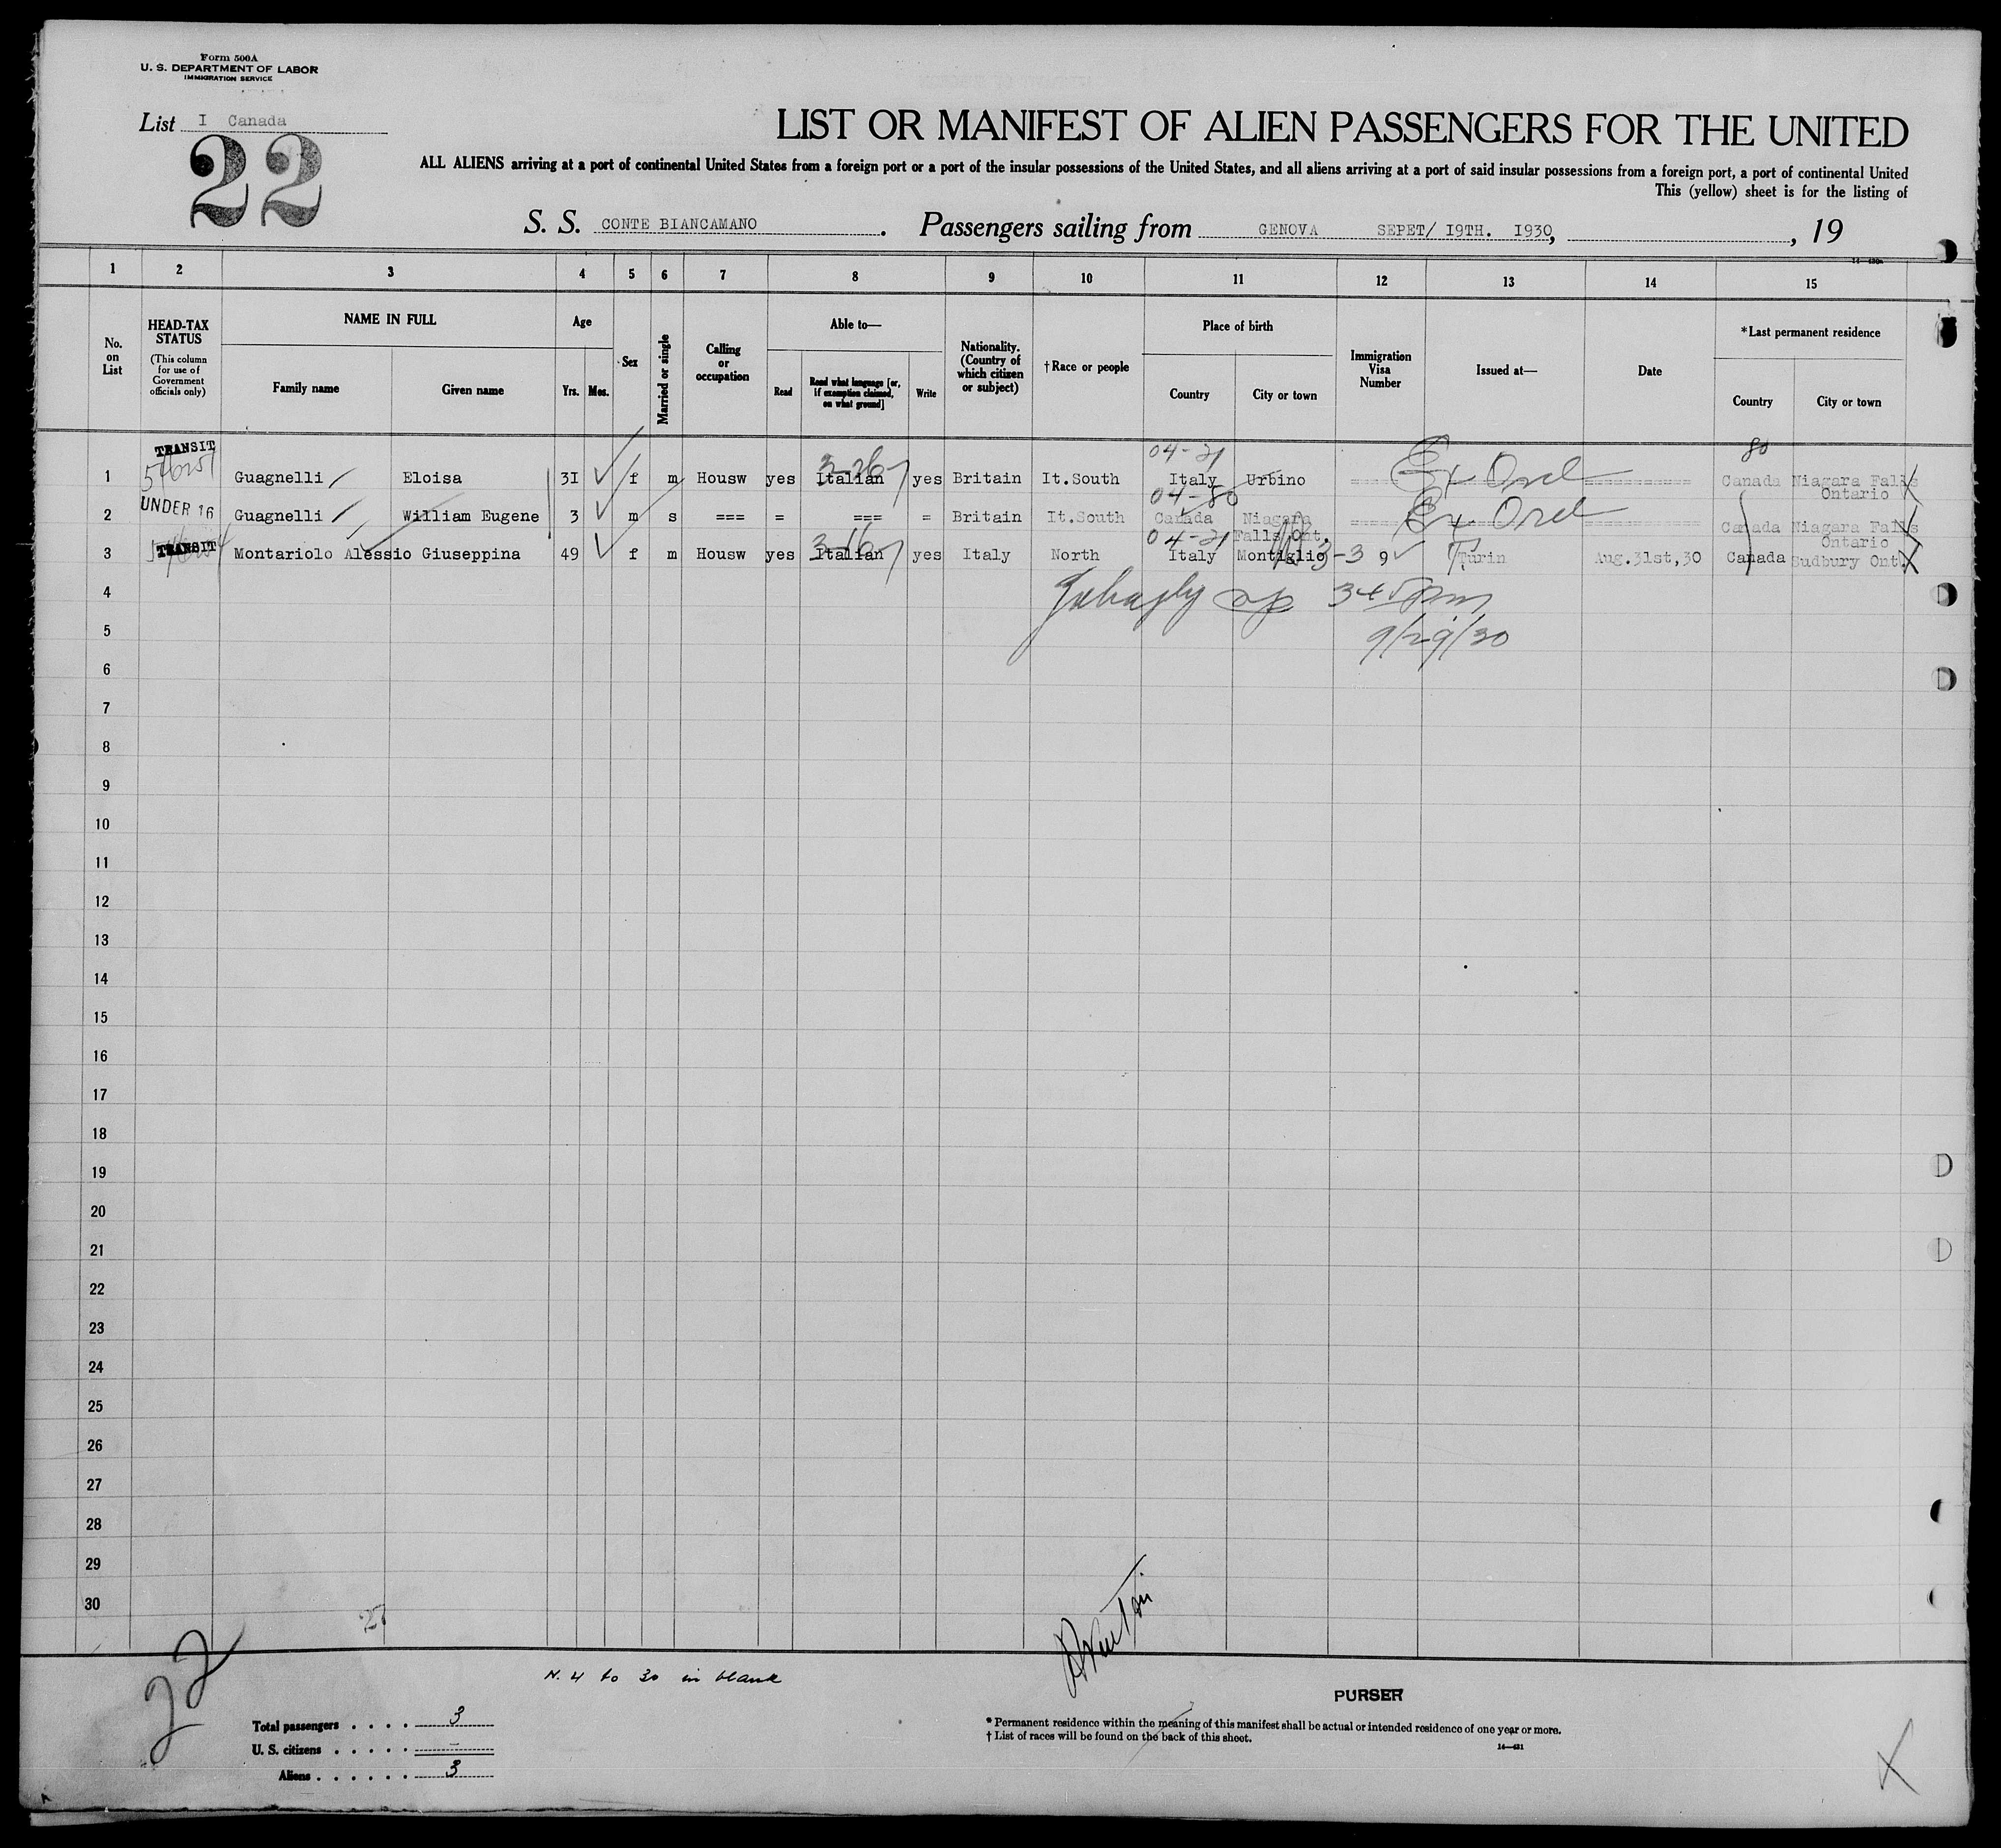 Form 500A
U. S. DEPARTMENT OF LABOR
IMMIGRATION SERVICE
List I Canada
22
LIST OR MANIFEST OF ALIEN PASSENGERS FOR THE UNITED
ALL ALIENS arriving at a port of continental United States from a foreign port or a port of the insular possessions of the United States, and all aliens arriving at a port of said insular possessions from a foreign port, a port of continental United
This (yellow) sheet is for the listing of
S. S. CONTE BIANCAMANO . Passengers sailing from GENOVA SEPET/ I9TH. I930, , 19
1 2 3 4 5 6 7 8 9 10 11 12 13 14 15
No. on List
HEAD-TAX STATUS
(This column for use of Government officials only)
NAME IN FULL
Family name Given name
Age
Yrs. Mos.
Sex
Married or single
Calling or occupation
Able to—
Read Read what language [or, if exemption claimed, on what ground] Write
Nationality. (Country of which citizen or subject)
†Race or people
Place of birth
Country City or town
Immigration Visa Number
Issued at—
Date
*Last permanent residence
Country City or town
TRANSIT 04-21 80
1 Guagnelli Eloisa 3I f m Housw yes Italian yes Britain It.South Italy Urbino ==== Ex Ord =========== Canada Niagara Falls Ontario
UNDER 16 04-80
2 Guagnelli William Eugene 3 m s === = === = Britain It.South Canada Niagara Falls Ont. Ex Ord Canada Niagara Falls Ontario
TRANSIT 04-21
3 Montariolo Alessio Giuseppina 49 f m Housw yes Italian yes Italy North Italy Montiglio 9 Turin Aug.31st,30 Canada Sudbury Ont.
4
9/29/30
5
6
7
8
9
10
11
12
13
14
15
16
17
18
19
20
21
22
23
24
25
26
27
28
29
30
27
22
N. 4 to 30 in blank
PURSER
Total passengers . . . . 3
U. S. citizens . . . . . —
Aliens . . . . . . 3
* Permanent residence within the meaning of this manifest shall be actual or intended residence of one year or more.
† List of races will be found on the back of this sheet.
14—421